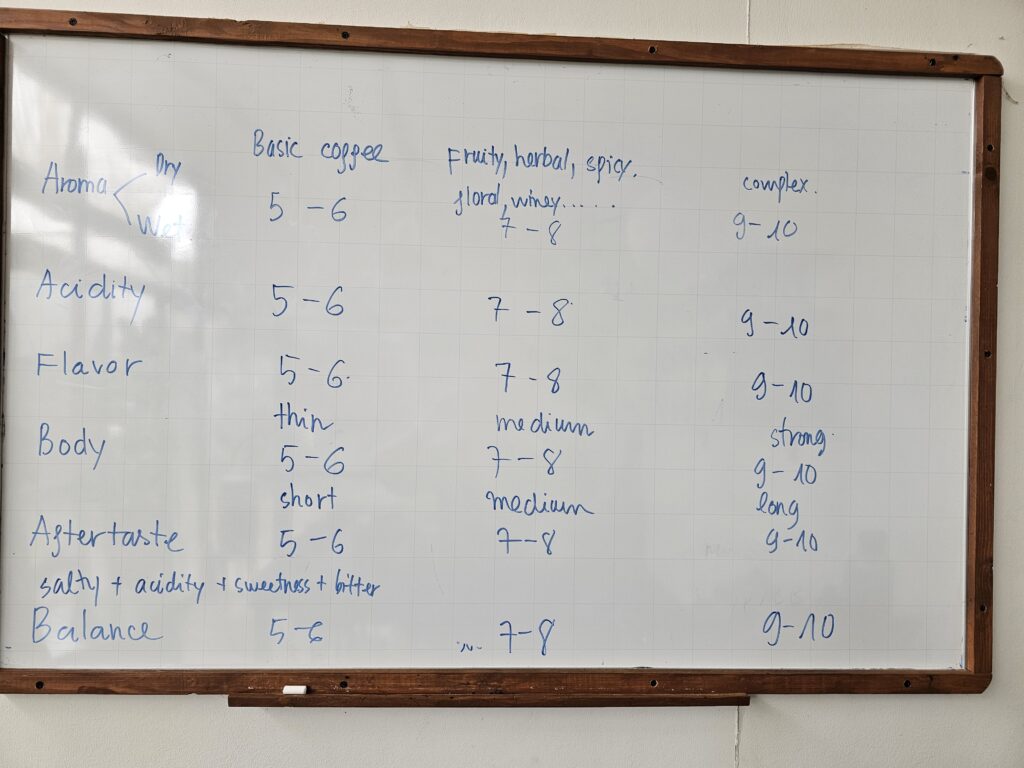 Basic coffee Fruity, herbal, spicy.
Dry
Aroma floral, winey..... complex.
Wet 5 - 6 7 - 8 9 - 10
Acidity 5 - 6 7 - 8 9 - 10
Flavor 5 - 6 7 - 8 9 - 10
thin medium strong
Body 5 - 6 7 - 8 9 - 10
short medium long
Aftertaste 5 - 6 7 - 8 9 - 10
salty + acidity + sweetness + bitter
Balance 5 - 6 7 - 8 9 - 10